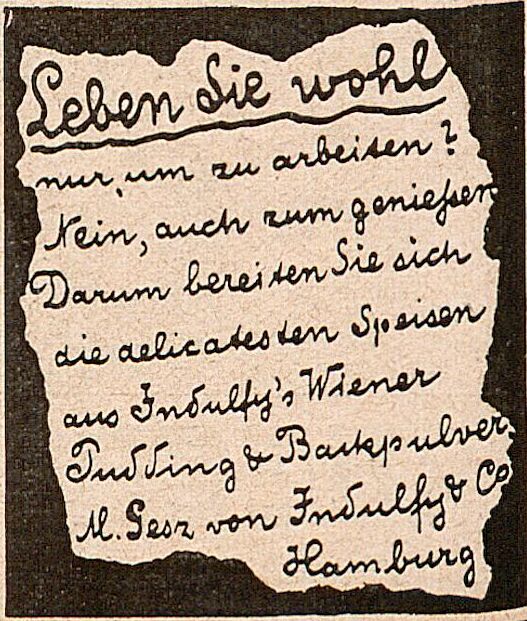 Leben Sie wohl
nur, um zu arbeiten?
Nein, auch zum genießen
Darum bereiten Sie sich
die delicatesten Speisen
aus Indulfy's Wiener
Pudding & Backpulver.
M. Gesz von Indulfy & Co
Hamburg